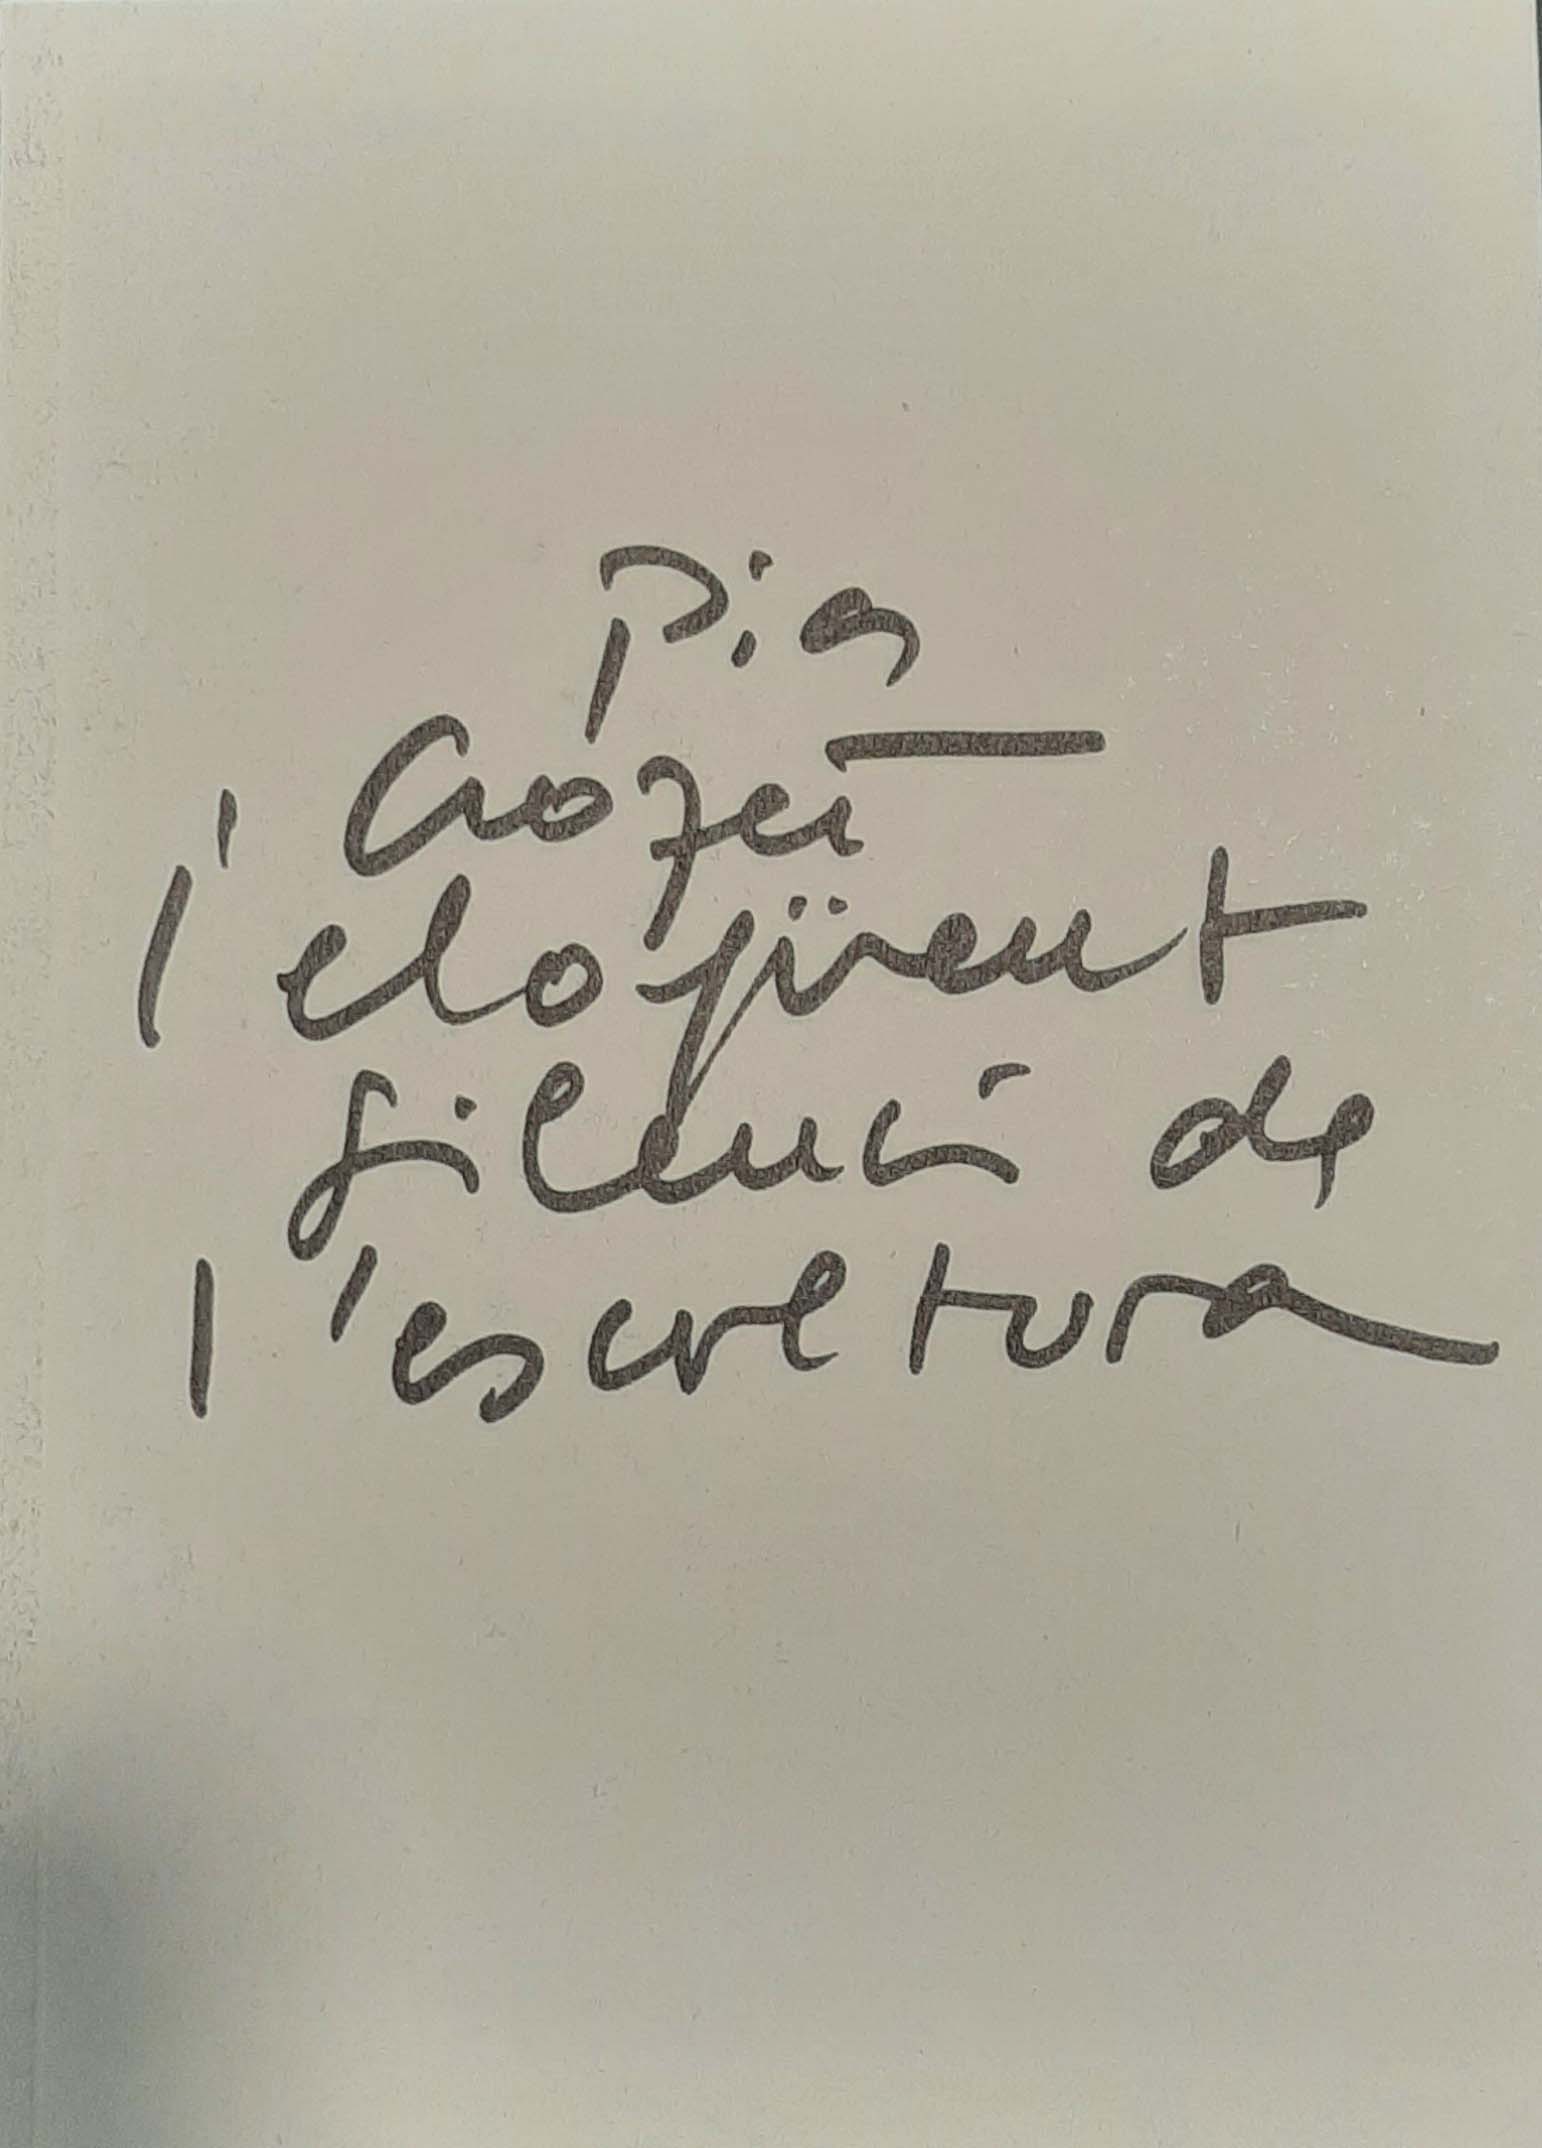 Pia
Crozet
l'eloqüent
silenci de
l'escretura